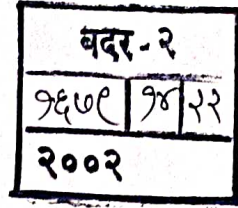 बदर - २
१६७९ १४ २२
२००२